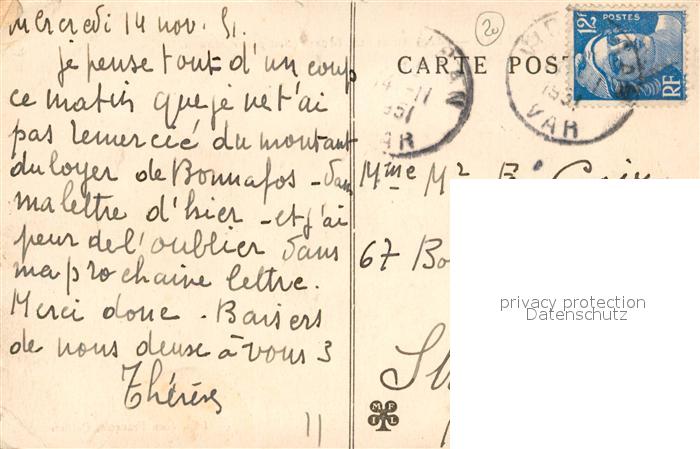 Mercredi 14 nov. 51.
je pense tout d'un coup
ce matin que je ne t'ai
pas remercié du montant
du loyer de Bonnafos - dans
ma lettre d'hier - et j'ai
peur de l'oublier dans
ma prochaine lettre.
Merci donc. Baisers
de nous deux à vous 3
Thérèse
11
20
CARTE POST
VAR
12F
POSTES
RF
Mme
67 Bo
privacy protection
Datenschutz
M F
I L